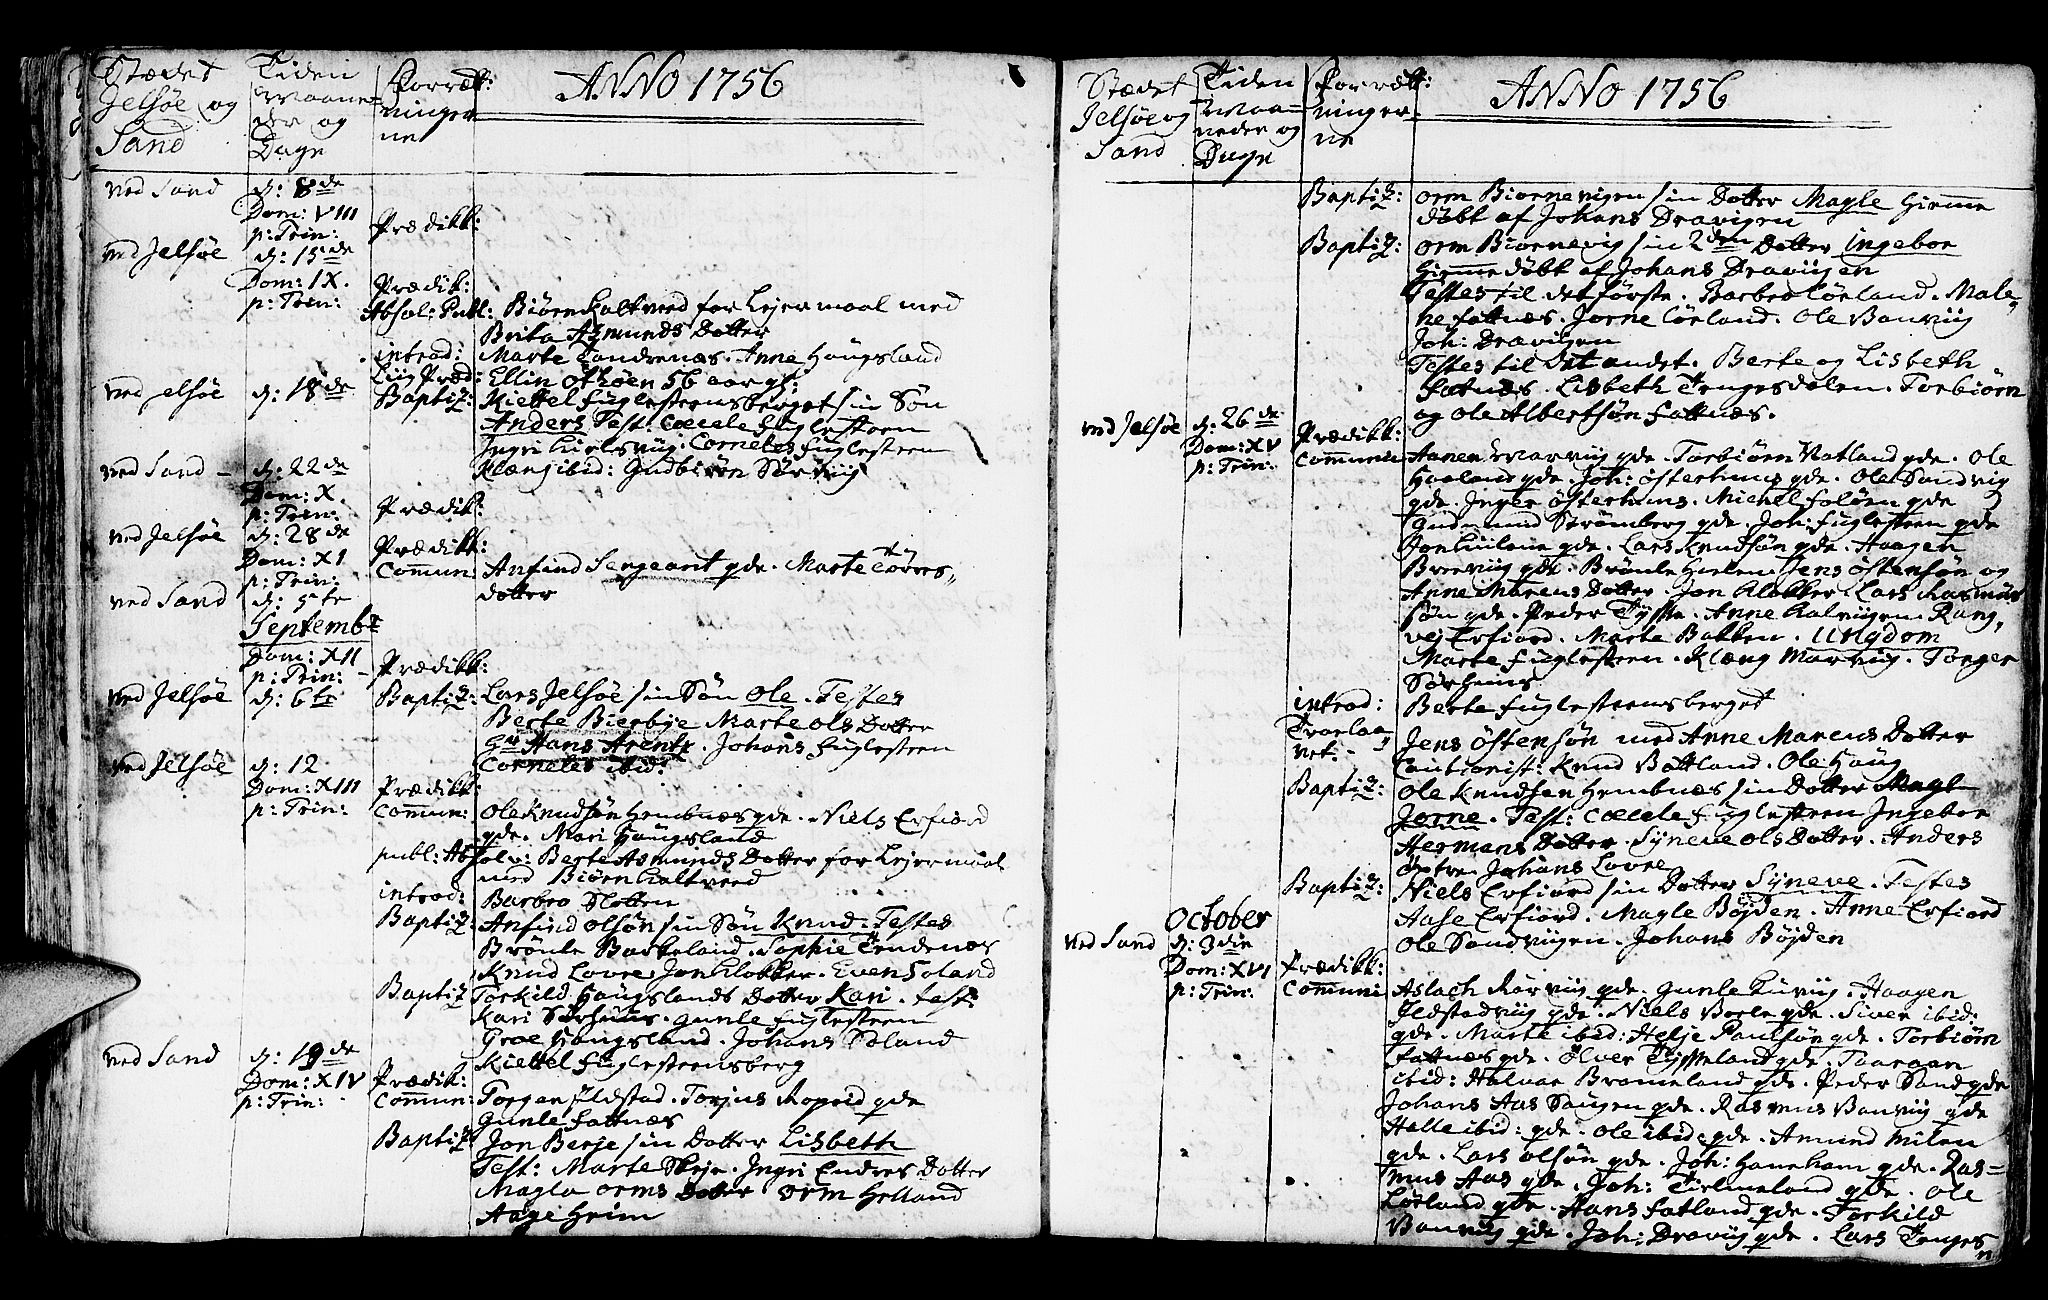 Stædet
Jelsøe og
Sand
Tiden
Maane=
der og
Dage
Forrætt:
ninger
ne
ANNO 1756
ved Sand
d: 8de
Dom: VIII
p: Trin:
Prædikk:
ved Jelsøe
d: 15de
Dom: IX.
p: Trin:
Prædik:
Absol: Publ: Biørn Kaltveed for Lejermaal med
Brita Asmunds Dotter
introd: Marte Tandrenæs. Anne Haugsland
Liig Præd: Ellin 56 aar gl:
ved Jelsøe d: 18de Baptiz: Kiettel Fuglesteensberget sin Søn
Anders Test: Cecele Fuglesteen
Ingri Hielsviig. Corneles Fuglesteen
Klæng ibid: Gudbiørn Sørviig
ved Sand - d: 22de
Dom: X.
p: Trin:
Prædik:
ved Jelsøe d: 28de
Dom: XI
p: Trin:
Prædikk:
Com̄un: Anfind Sergeant qde. Marte Tøres„
dotter
ved Sand d: 5te
Septembr
Dom: XII
p: Trin: -
Prædikk:
ved Jelsøe d: 6te Baptiz: Lars Jelsøe sin Søn Ole. Testes
Berte Bierbye Marte Ols Dotter
Hr Hans Arentz. Johans Fuglesteen
Corneles ibid:
ved Jelsøe d: 12
Dom: XIII
p: Trin:
Prædikk:
Com̄un: Ole Knudsøn Hembnæs qde. Niels Erfiord
qde. Mari Haugsland
publ: Absolv: Berte Asmunds Dotter for Lejermaal
med Biørn Kaltveed
introd: Barbro Flotten
Baptiz: Anfind Olsøn sin Søn Knud. Testes
Brønle Barkeland. Sophie Tendenæs
Knud Lovre. Jon Klokker. Even Soland
Baptiz Torkild Haugslands Dotter Kari. test:
Kari Sørheims. Gunle Fuglesteen
Groe Haugsland. Johans Soland
Kiettel Fuglesteensberg
ved Sand d: 19de
Dom: XIV
p: Trin:
Prædik:
Com̄un: Torger Ilstad. Torjus Roperid qde
Gunle Fattnæs
Baptiz Jon Berje sin Dotter Lisbeth
Test: Marte Skeje. Ingri Endres Dotter
Magla Orms Dotter Orm Helland
Aage Heim
Stædet
Jelsøe og
Sand
Tiden
Maa=
neder og
Dage
Forrætt:
ninger
ne
ANNO 1756
Baptiz: Orm Biornevigen sin Dotter Magle hiemme
døbt af Johans Dravigen
Baptiz: Orm Biornevig sin 2den Dotter Ingebor
hiemmedøbt af Johans Draviigen
Testes til det første. Barbro Lørland. Male„
ne Fattnæs. Jorne Lørland. Ole Vanviig
Joh: Dravigen
Testes til det andet. Berte og Lisbeth
Fattnæs. Lisbeth Tengesdalen. Torbiørn
og Ole Albertsøn Fattnæs.
ved Jelsøe d: 26de
Dom: XV
p: Trin:
Prædikk:
Com̄un: Aanen Marviig qde. Torbiørn Vatland qde. Ole
Haaland qde. Joh: Østerhuus qde. Ole Sandvig
qde. Inger Østerhuus. Michel Foløen qde
Gudmund Strømberg qde. Joh: Fuglesteen qde
Jon qde. Lars Knudsøn qde. Haagen
Breviig qde. Brønle Jens Østensøn og
Anne Marcus Dotter. Jon Klokker Lars Rasmus
søn qde. Peder Tysse. Anne Kalviigen Rang„
vej Erfiord. Marte Bakken. Ungdom
Marte Fuglesteen. Klæng Marvig. Torger
Sørheims
introd: Berte Fuglesteensberget
Troelov„
vet - Jens Østensøn med Anne Marcus Dotter
Cautionist: Knud Bottland. Ole Haug
Baptiz: Ole Knudsen Hembnæs sin Dotter Magl
Jorne. Test: Cecele Fuglesteen Ingebor
Hermans Dotter. Syneve Ols Dotter. Anders
Østre. Johans Lovre
Baptiz: Niels Erfiord sin Dotter Syneve. Testes
Aase Erfiord. Magle Bøjden. Anne Erfiord
Ole Sandviigen. Johans Bøjden
October
ved Sand d: 3die
Dom: XVI
p: Trin:
Prædikk:
Com̄uni Aslach Rørviig qde. Gunle Kuviig. Haagen
Ildstadviig qde. Niels Berle qde. Siver ibid:
qde. Marte ibid: Helje Paulsøn qde. Torbiørn
Fattnæs qde. Ølver Tysseland qde. Taaraan
ibid: Halvar Bromeland qde. Peder Sand qde
Johans Aas Saugen qde. Rasmus Vanviig qde
Helle ibid: qde. Ole ibid: qde. Amund Milen
qde. Lars Olsøn qde. Joh: Haneham qde. Ras=
mus Aas qde. Joh: Tielmeland qde. Ole
Lørland qde. Hans Fatland qde. Torkild
Vanviig qde. Joh: Draviig qde. Lars Tenges